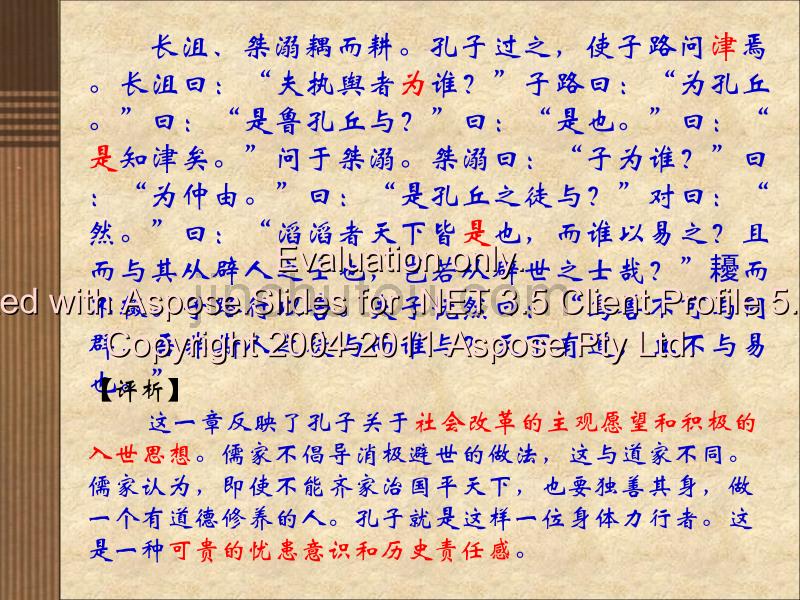 长沮、桀溺耦而耕。孔子过之，使子路问津焉
。长沮曰：“夫执舆者为谁？”子路曰：“为孔丘
。”曰：“是鲁孔丘与？”曰：“是也。”曰：“
是知津矣。”问于桀溺。桀溺曰：“子为谁？”曰
：“为仲由。”曰：“是孔丘之徒与？”对曰：“
然。”曰：“滔滔者天下皆是也，而谁以易之？且
Evaluation only.
而与其从辟人之士也，岂若从辟世之士哉？”耰而
ed with Aspose.Slides for .NET 3.5 Client Profile 5.
jinchutou.com
不辍。子路行以告。夫子怃然曰：“鸟兽不可与同
群，吾非斯人之徒与而谁与？天下有道，丘不与易
Copyright 2004-2011 Aspose Pty Ltd.
也。”
【评析】
这一章反映了孔子关于社会改革的主观愿望和积极的
入世思想。儒家不倡导消极避世的做法，这与道家不同。
儒家认为，即使不能齐家治国平天下，也要独善其身，做
一个有道德修养的人。孔子就是这样一位身体力行者。这
是一种可贵的忧患意识和历史责任感。